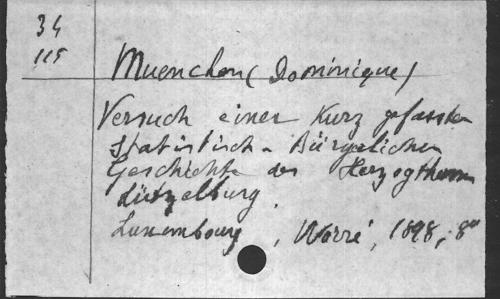 34
115
Muenchen (Dominique)
Versuch einer Kurz gefassten
Statistisch - Bürgelichen
Geschichte des Herzogthums
Lützelburg.
Luxembourg, Worré, 1898, 8°